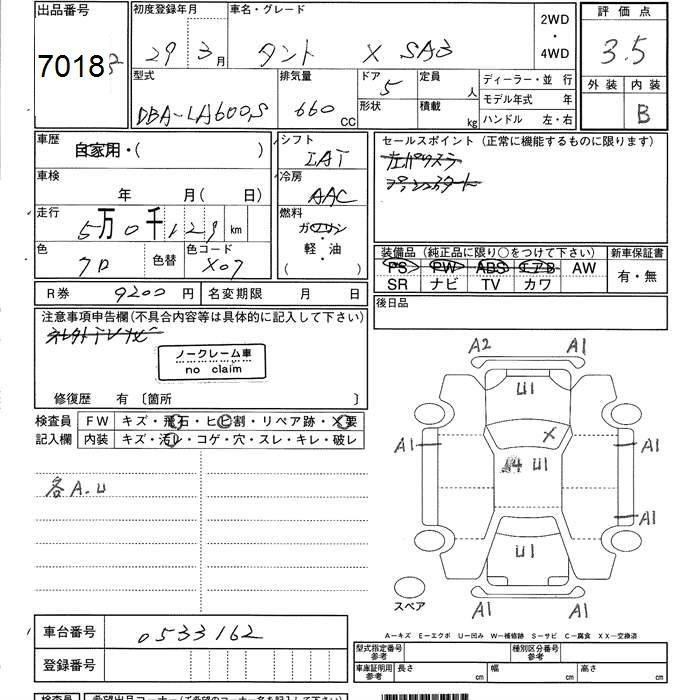 出品番号
7018
初度登録年月 車名・グレード
29 3月 タント X SAⅢ
2WD
・
4WD
評価点
3.5
外装 内装
B
型式 排気量 ドア 定員 ディーラー・並行
DBA-LA600S 660 CC 5 人 モデル年式 年
形状 積載 kg ハンドル 左・右
車歴 シフト セールスポイント(正常に機能するものに限ります)
自家用・( ) IAT 左パワスラ
車検 冷房 プッシュスタート
年 月(日) AAC
走行 燃料
5万0千129km ガソリン
・
色 色替 色コード 軽・油
クロ X07 ( )
装備品(純正品に限り○をつけて下さい) 新車保証書
PS PW ABS エアB AW 有・無
SR ナビ TV カワ
後日品
R券 9200円 名変期限 月 日
注意事項申告欄(不具合内容等は具体的に記入して下さい)
ノークレーム車
no claim
修復歴 有〔箇所 〕
検査員 FW キズ・飛石・ヒビ割・リペア跡・X要
記入欄 内装 キズ・汚レ・コゲ・穴・スレ・キレ・破レ
各A.U
A2 A1
U1
A1 X A1
U1
A1
U1
A1 A1
スペア
A-キズ E-エクボ U-凹み W-補修跡 S-サビ C-腐食 XX-交換済
車台番号 0533162
登録番号
型式指定番号 参考 種別区分番号 参考
車庫証明用 参考 長さ cm 幅 cm 高さ cm
検査員 希望出品コーナー(ご希望のコーナー名を記入下さい)